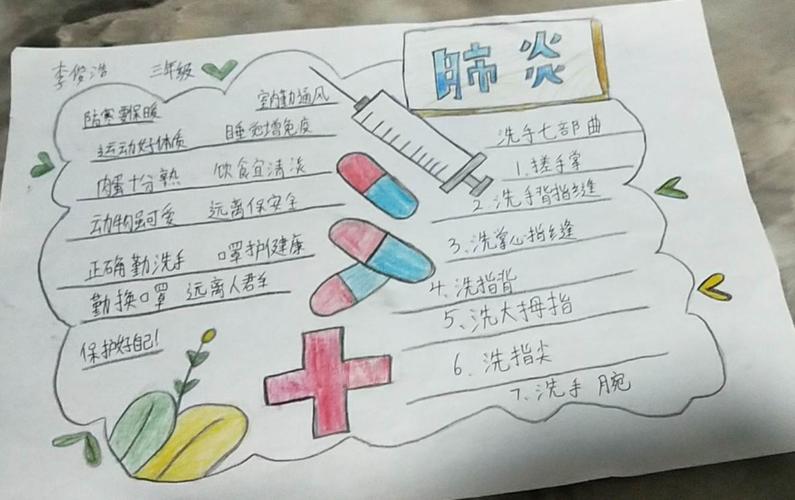 李俊浩 三年级
肺炎
防寒要保暖 室内勤通风
运动好体质 睡觉增免疫
肉蛋十分熟 饮食宜清淡
动物虽可爱 远离保安全
正确勤洗手 口罩护健康
勤换口罩 远离人群
保护好自己!
洗手七部曲
1.搓手掌
2.洗手背指缝
3.洗掌心指缝
4.洗指背
5、洗大拇指
6、洗指尖
7、洗手腕